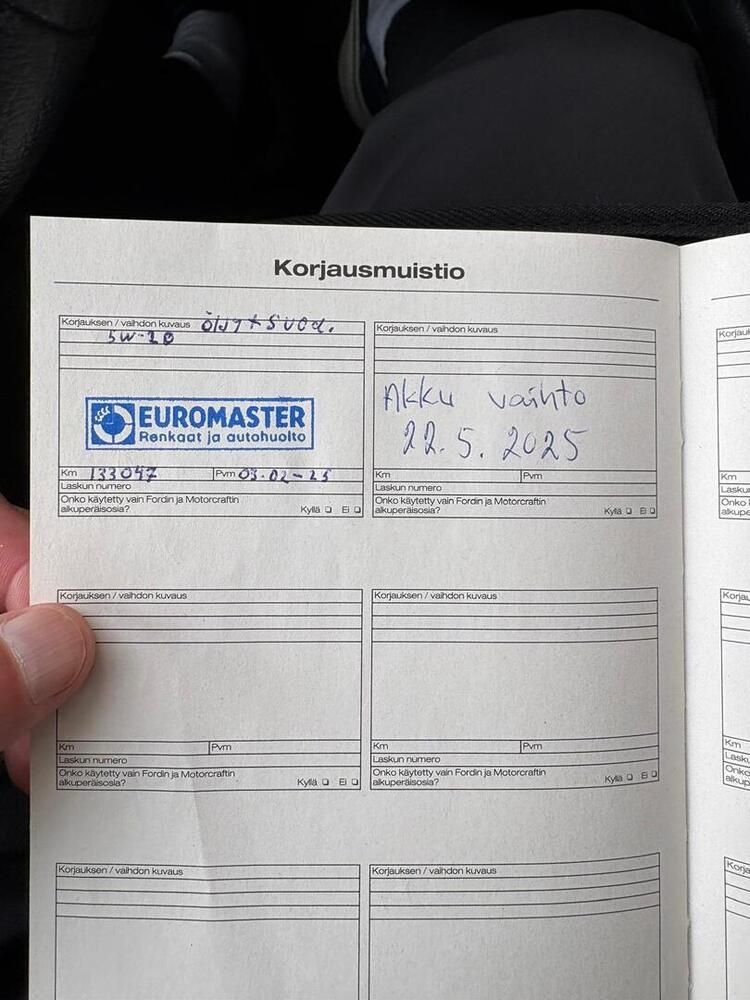 Korjausmuistio
Korjauksen / vaihdon kuvaus Öljyt+Suod.
5W-20
EUROMASTER
Renkaat ja autohuolto
Km 133047 Pvm 03-02-25
Laskun numero
Onko käytetty vain Fordin ja Motorcraftin
alkuperäisosia? Kyllä Ei
Korjauksen / vaihdon kuvaus
Akku vaihto
22.5.2025
Km Pvm
Laskun numero
Onko käytetty vain Fordin ja Motorcraftin
alkuperäisosia? Kyllä Ei
Korjauksen / vaihdon kuvaus
Km Pvm
Laskun numero
Onko käytetty vain Fordin ja Motorcraftin
alkuperäisosia? Kyllä Ei
Korjauksen / vaihdon kuvaus
Km Pvm
Laskun numero
Onko käytetty vain Fordin ja Motorcraftin
alkuperäisosia? Kyllä Ei
Korjauksen / vaihdon kuvaus
Korjauksen / vaihdon kuvaus
Km
Km